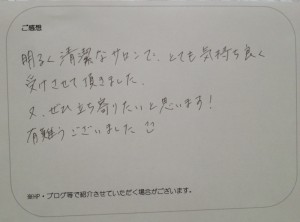 ご感想
明るく清潔なサロンで、とても気持ち良く
受けさせて頂きました。
又、ぜひ立ち寄りたいと思います!
有難うございました
※HP・ブログ等で紹介させていただく場合がございます。